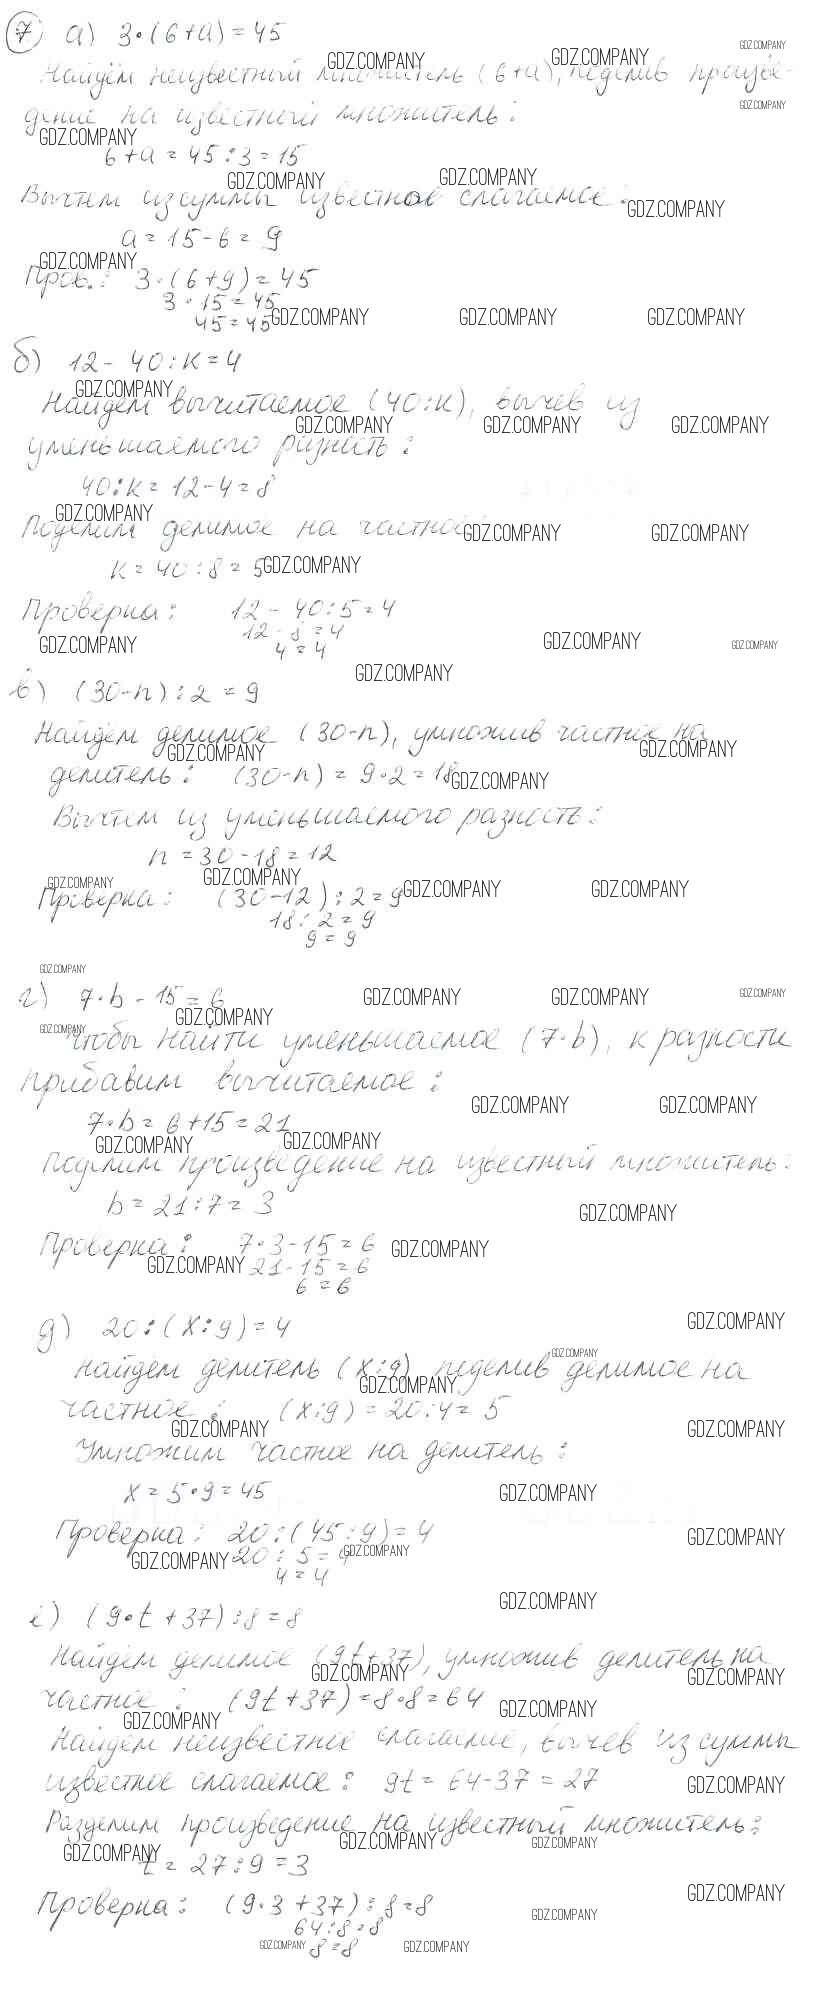 7 а) 3·(6+a)=45
Найдём неизвестный множитель (6+a), поделив произве-
дение на известный множитель:
6+a=45:3=15
Вычтем из суммы известное слагаемое:
a=15-6=9
Пров.: 3·(6+9)=45
3·15=45
45=45
б) 12-40:k=4
Найдём вычитаемое (40:k), вычев из
уменьшаемого разность:
40:k=12-4=8
Поделим делимое на частное
k=40:8=5
Проверка: 12-40:5=4
12-8=4
4=4
в) (30-n):2=9
Найдём делимое (30-n), умножив частное на
делитель: (30-n)=9·2=18
Вычтем из уменьшаемого разность:
n=30-18=12
Проверка: (30-12):2=9
18:2=9
9=9
г) 7·b-15=6
Чтобы найти уменьшаемое (7·b), к разности
прибавим вычитаемое:
7·b=6+15=21
Поделим произведение на известный множитель:
b=21:7=3
Проверка: 7·3-15=6
21-15=6
6=6
д) 20:(x:9)=4
Найдём делитель (x:9), поделив делимое на
частное: (x:9)=20:4=5
Умножим частное на делитель:
x=5·9=45
Проверка: 20:(45:9)=4
20:5=4
4=4
е) (9·t+37):8=8
Найдём делимое (9t+37), умножив делитель на
частное: (9t+37)=8·8=64
Найдём неизвестное слагаемое, вычев из суммы
известное слагаемое: 9t=64-37=27
Разделим произведение на известный множитель:
t=27:9=3
Проверка: (9·3+37):8=8
64:8=8
8=8
GDZ.COMPANY